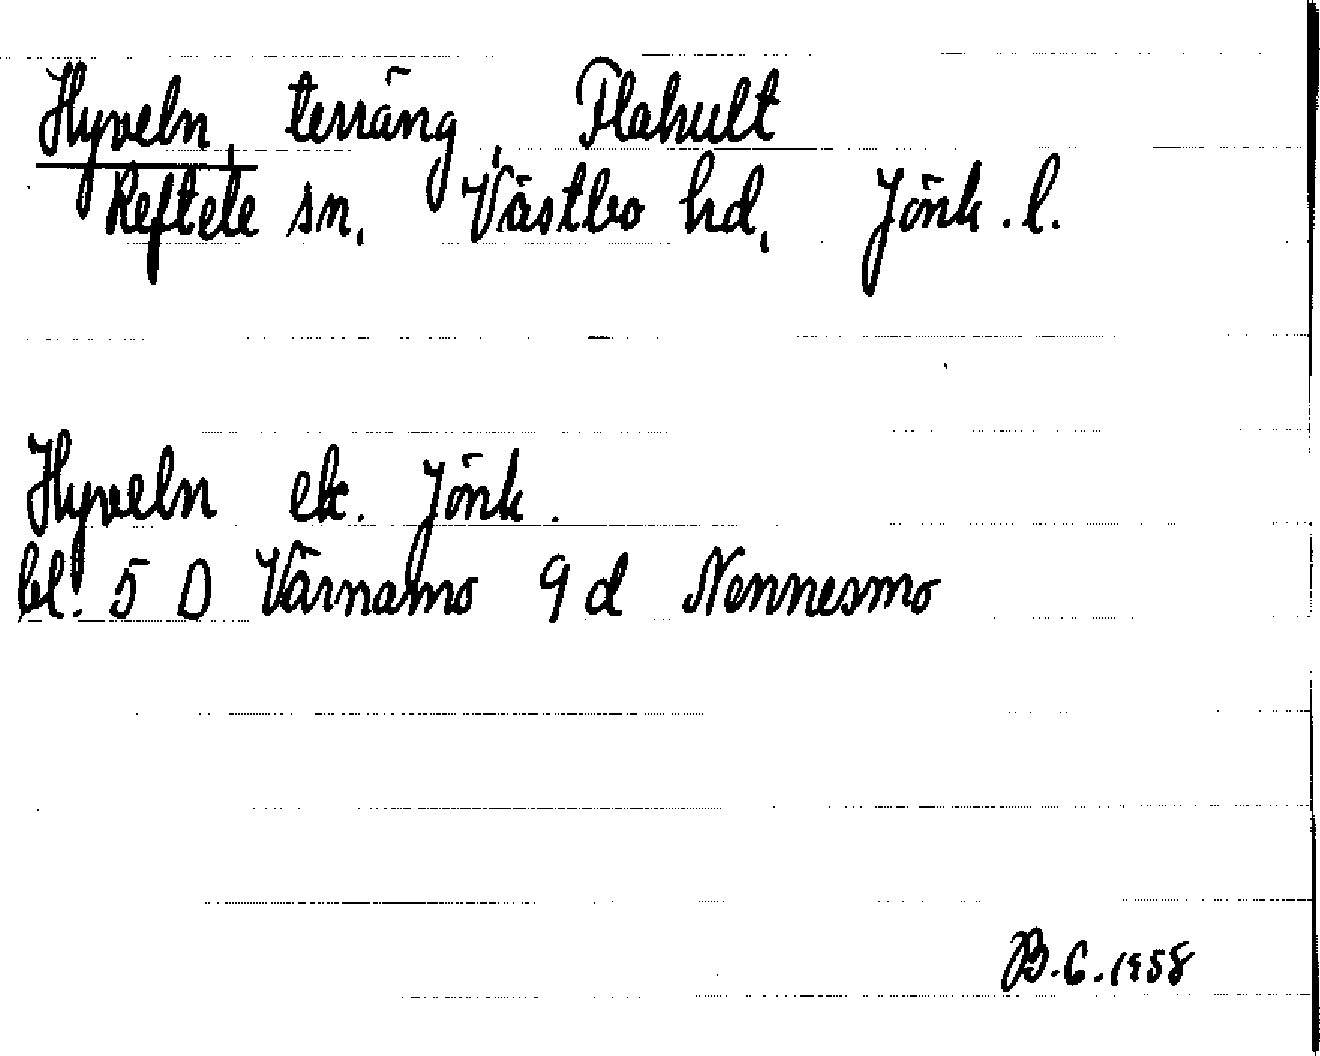 Hyveln, terräng, Flahult
Reftele sn, Västbo hd, Jönk. l.
Hyveln ek. Jönk.
bl. 5 D Värnamo 9 d Nennesmo
B.G. 1958